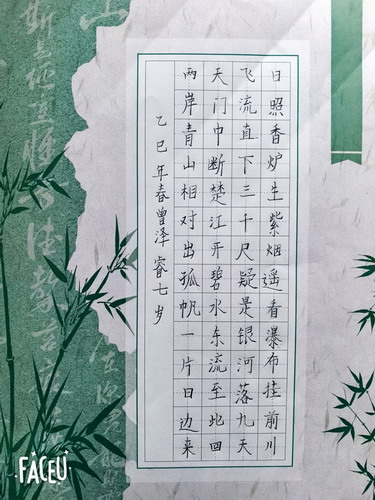 日照香炉生紫烟遥看瀑布挂前川
飞流直下三千尺疑是银河落九天
天门中断楚江开碧水东流至此回
两岸青山相对出孤帆一片日边来
乙巳年春曾泽睿七岁
山
FACEU